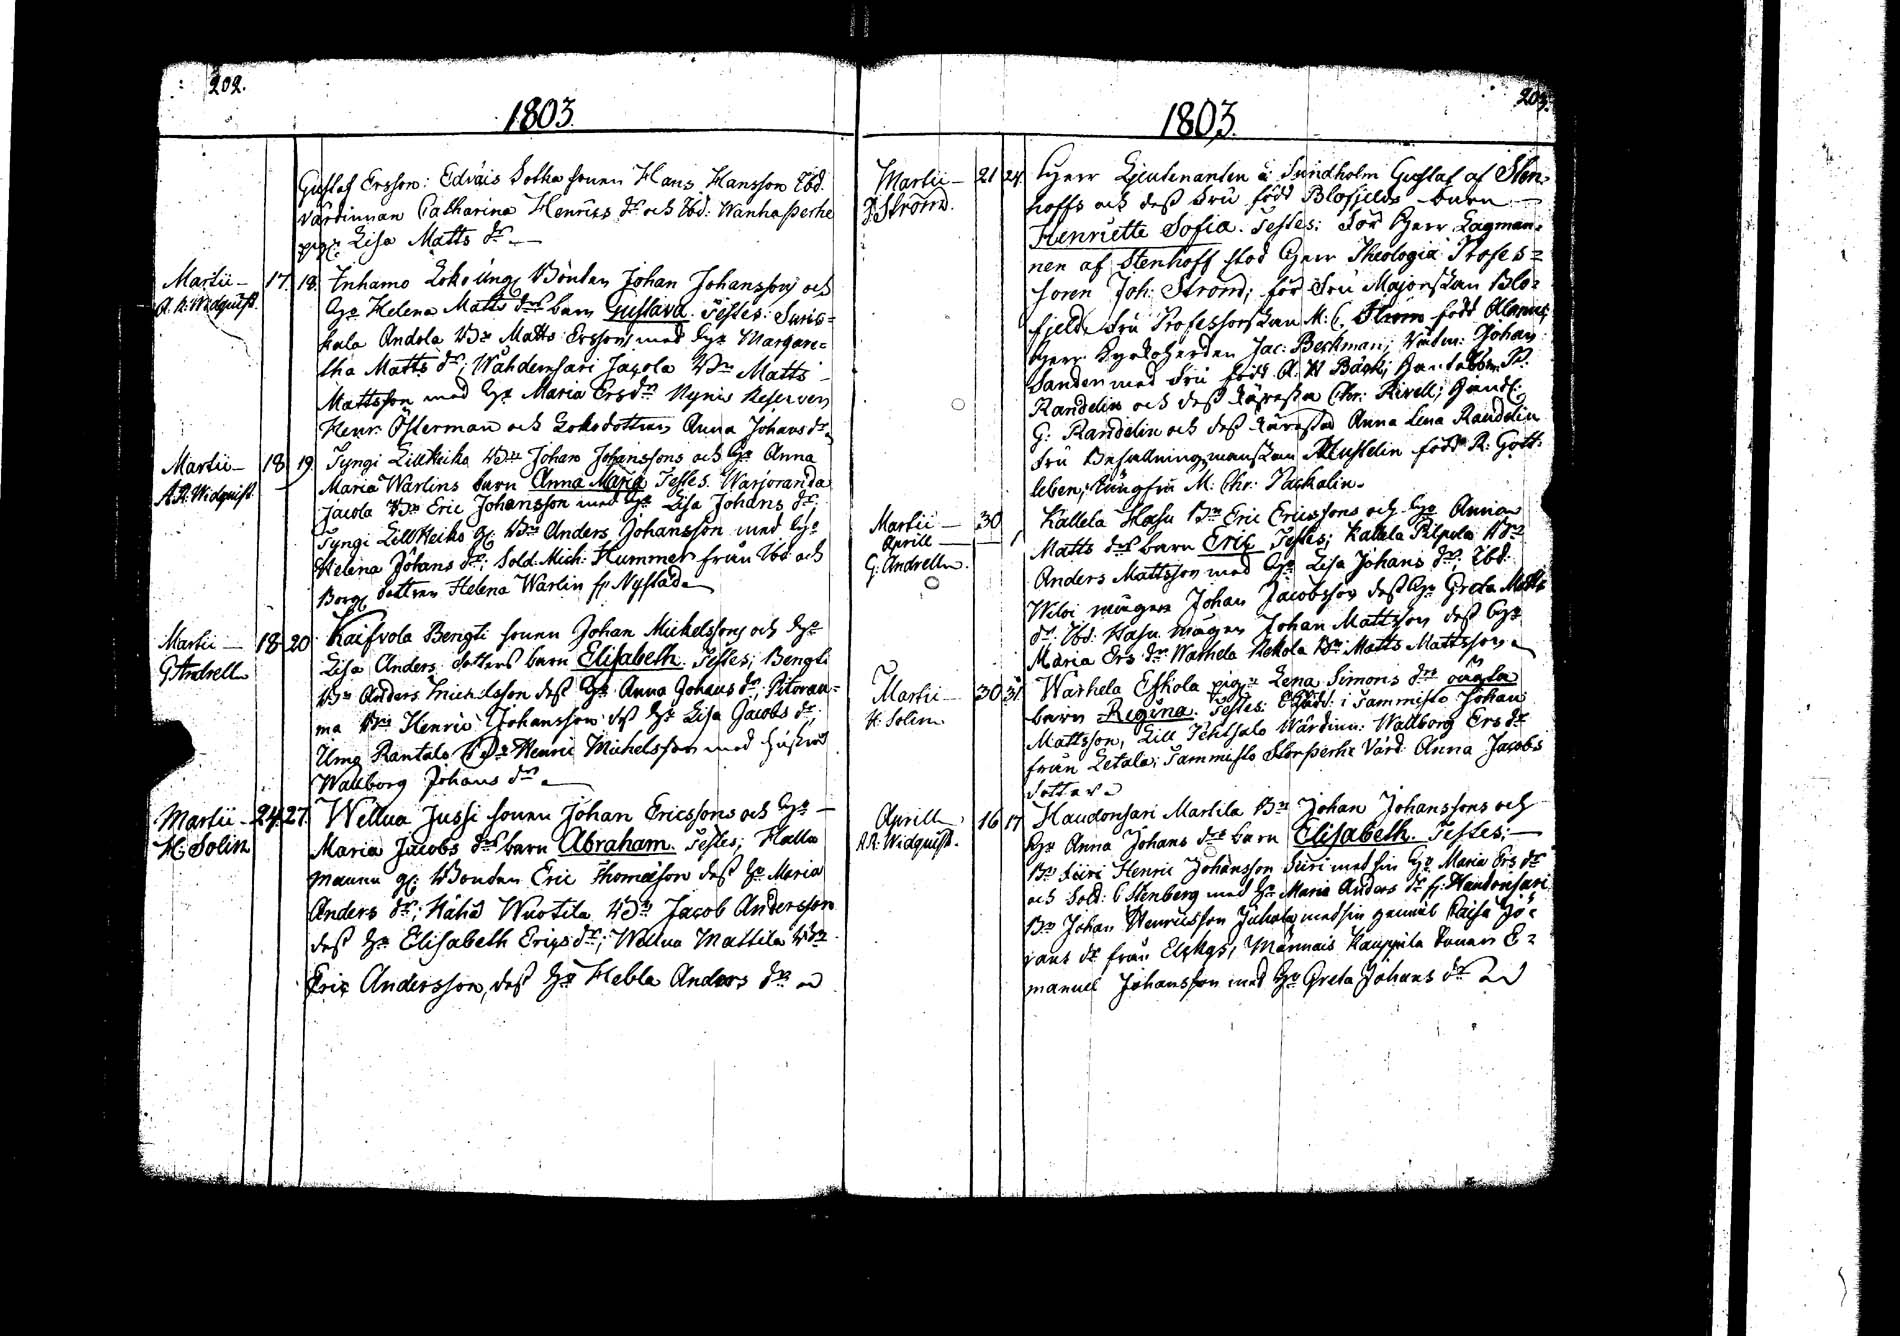 202.
1803.
Gustaf Ersson: Edvais Sotka sonen Hans Hansson Ibd.
värdinnan Catharina Henrics dr och Ibd: Wanhaperhe
pig: Lisa Matts dr
Martii 17. 18. Inhamo Loko ung Bonden Johan Johanssons och
A. R: Widquist. Hr Helena Matts drs barn Gustava. Testes: Suris=
kala Andola Bn Matts Ersson med Hr Margare=
tha Matts dr; Wähdemsari Jacola Bn Matts
Mattsson med Hr Maria Ersdr Nynis Reserven
Henr: Österman och Lokodottren Anna Johansdr
Martii 18 19. Tyngi Lillheika Bn Johan Johanssons och Hr Anna
A. R: Widquist. Maria Warlins barn Anna Maria Testes. Warjoranda
Jacola Bn Eric Johansson med Hr Lisa Johans dr;
Tyngi Lillheika Bn Anders Johansson med Hr
Helena Johans dr; Sold: Mich: Hummer från Ibd och
Borg dottren Helena Warlin fr Nystad
Martii 18 20 Kaifvola Bengti sonen Johan Michelssons och Hr
G Andrell Lisa Anders dotters barn Elisabeth. Testes; Bengti
Bn Anders Michelsson dess Hr Anna Johans dr; Pitoran=
ma Bn Henric Johansson dess Hr Lisa Jacobs dr;
Rantalo Bn Henric Michelsson med hustru
Wallborg Johans dr
Martii 24. 27. Wellua Jussi sonen Johan Ericssons och Hr
H: Solin Maria Jacobs drs barn Abraham. Testes; Halla
mannu Bonden Eric Thomasson dess Hr Maria
Anders dr; Wuotila Bn Jacob Andersson
dess Hr Elisabeth Erics dr; Wellua Mattila Bn
Eric Andersson, dess Hr Hebla Anders dr
203.
1803.
Martii 21 24. Herr Lieutenanten å Sundholm Gustaf af Sten=
J Ström. hoffs och dess Fru född Blofjelds barn
Henriette Sofia. Testes: För Herr Lagman=
nen af Stenhoff stod Herr Theologiæ Profes=
soren Joh: Ström; för Fru Majorskan Blo=
fjeld Fru Professorskan M: C. Ström född Alanus;
Herr Kyrkoherden Jac: Beckman; Johan
Sanden med Fru född A. W Bäck;
Randelin och dess Käresta Chr: Kivell; Handl:
G: Randelin och dess Käresta Anna Lena Randelin
Fru Befallningsmanskan Musselin född R: Gott=
leben; Jungfru M: Chr: Pachalin.
Martii 30 Kallela Hasu Bn Eric Ericssons och Hr Anna
Aprill 1 Matts drs barn Eric Testes; Kallela Pilpola Bn
G: Andrell Anders Mattsson med Hr Lisa Johans dr; Ibd:
Wiloi mågen Johan Jacobsson dess Hr Greta Matts
dr Ibd: Hasu mågen Johan Mattsson dess Hr
Maria Ers dr Warhela Uckola Bn: Matts Mattsson
Martii 30 31. Warhela Eskola pig: Lena Simons drs oägta
H: Solin barn Regina. Testes: i Sammisto Johan
Mattsson, Lill Värdinn: Wallborg Ers dr
från Letala; Sammisto Storperhe Värd: Anna Jacobs
dotter
Aprill 16 17 Haudonsari Martila Bn Johan Johanssons och
A R: Widquist. Hr Anna Johans drs barn Elisabeth. Testes;
Bn Suri Henric Johansson Suri med sin Hr Maria Ers dr
och Sold: C Stenberg med Hr Maria Anders dr fr: Haudonsari
Bn Johan Henricsson Juhola med sin gemål Caisa Jo=
hans dr från Elgkgs; Männais Kauppila sonen E=
manuel Johansson med Hr Greta Johans dr